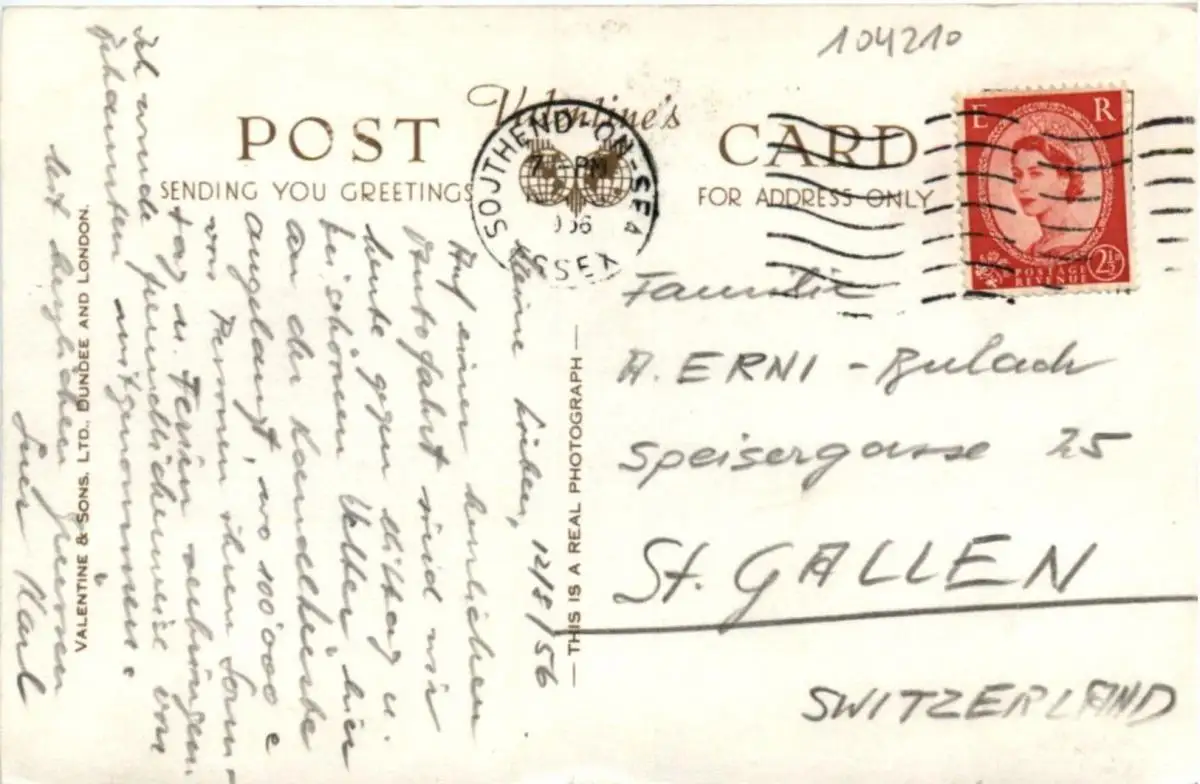 104210
Valentine's
POST CARD
SENDING YOU GREETINGS
FOR ADDRESS ONLY
SOUTHEND-ON-SEA
7 PM
956
ESSEX
E R
POSTAGE
REVENUE
2½
Familie
A. ERNI - Bulach
Speisergasse 25
St. GALLEN
SWITZERLAND
THIS IS A REAL PHOTOGRAPH
VALENTINE & SONS, LTD., DUNDEE AND LONDON.
Meine Lieben, 12/8/56
Auf einer herrlichen
Autofahrt sind wir
heute gegen Mittag u.
bei schönem Wetter, hier
an der Kanalküste
angelangt, wo 100'000 e
von Personen ihren Sams-
tag u. Ferien verbringen
Ich wurde freundlicherweise von
Bekannten mitgenommen.
Mit herzlichen Grüssen
Euer Karl